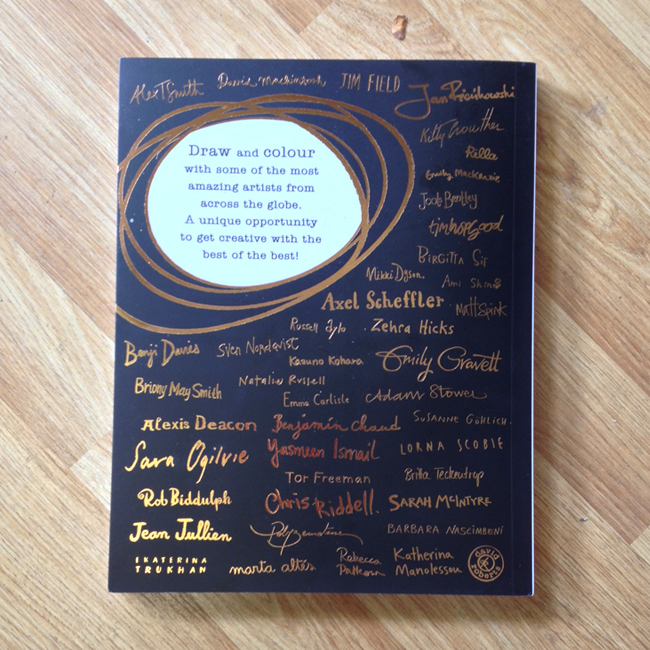 Alex T Smith
David Mackintosh
JIM FIELD
Jan Pieńkowski
Kitty Crowther
Rilla
Emily MacKenzie
Draw and colour
with some of the most
amazing artists from
across the globe.
A unique opportunity
to get creative with the
best of the best!
Joob Bentley
tim hopgood
BIRGITTA Sif
Nikki Dyson
Ami Shin
Axel Scheffler
Matt Spink
Russell Ayto
Zehra Hicks
Benji Davies
Sven Nordqvist
Kazuno Kohara
Emily Gravett
Briony May Smith
Natalie Russell
Emma Carlisle
Adam Stower
Alexis Deacon
Benjamin Chaud
SUSANNE GÖHLICH
Sara Ogilvie
Yasmeen Ismail
LORNA SCOBIE
Tor Freeman
Britta Teckentrup
Rob Biddulph
Chris Riddell.
SARAH McINTYRE
Jean Jullien
BARBARA NASCIMBENI
EKATERINA
TRUKHAN
marta altés
Rebecca
Patterson
Katherina
Manolessou
david
roberts